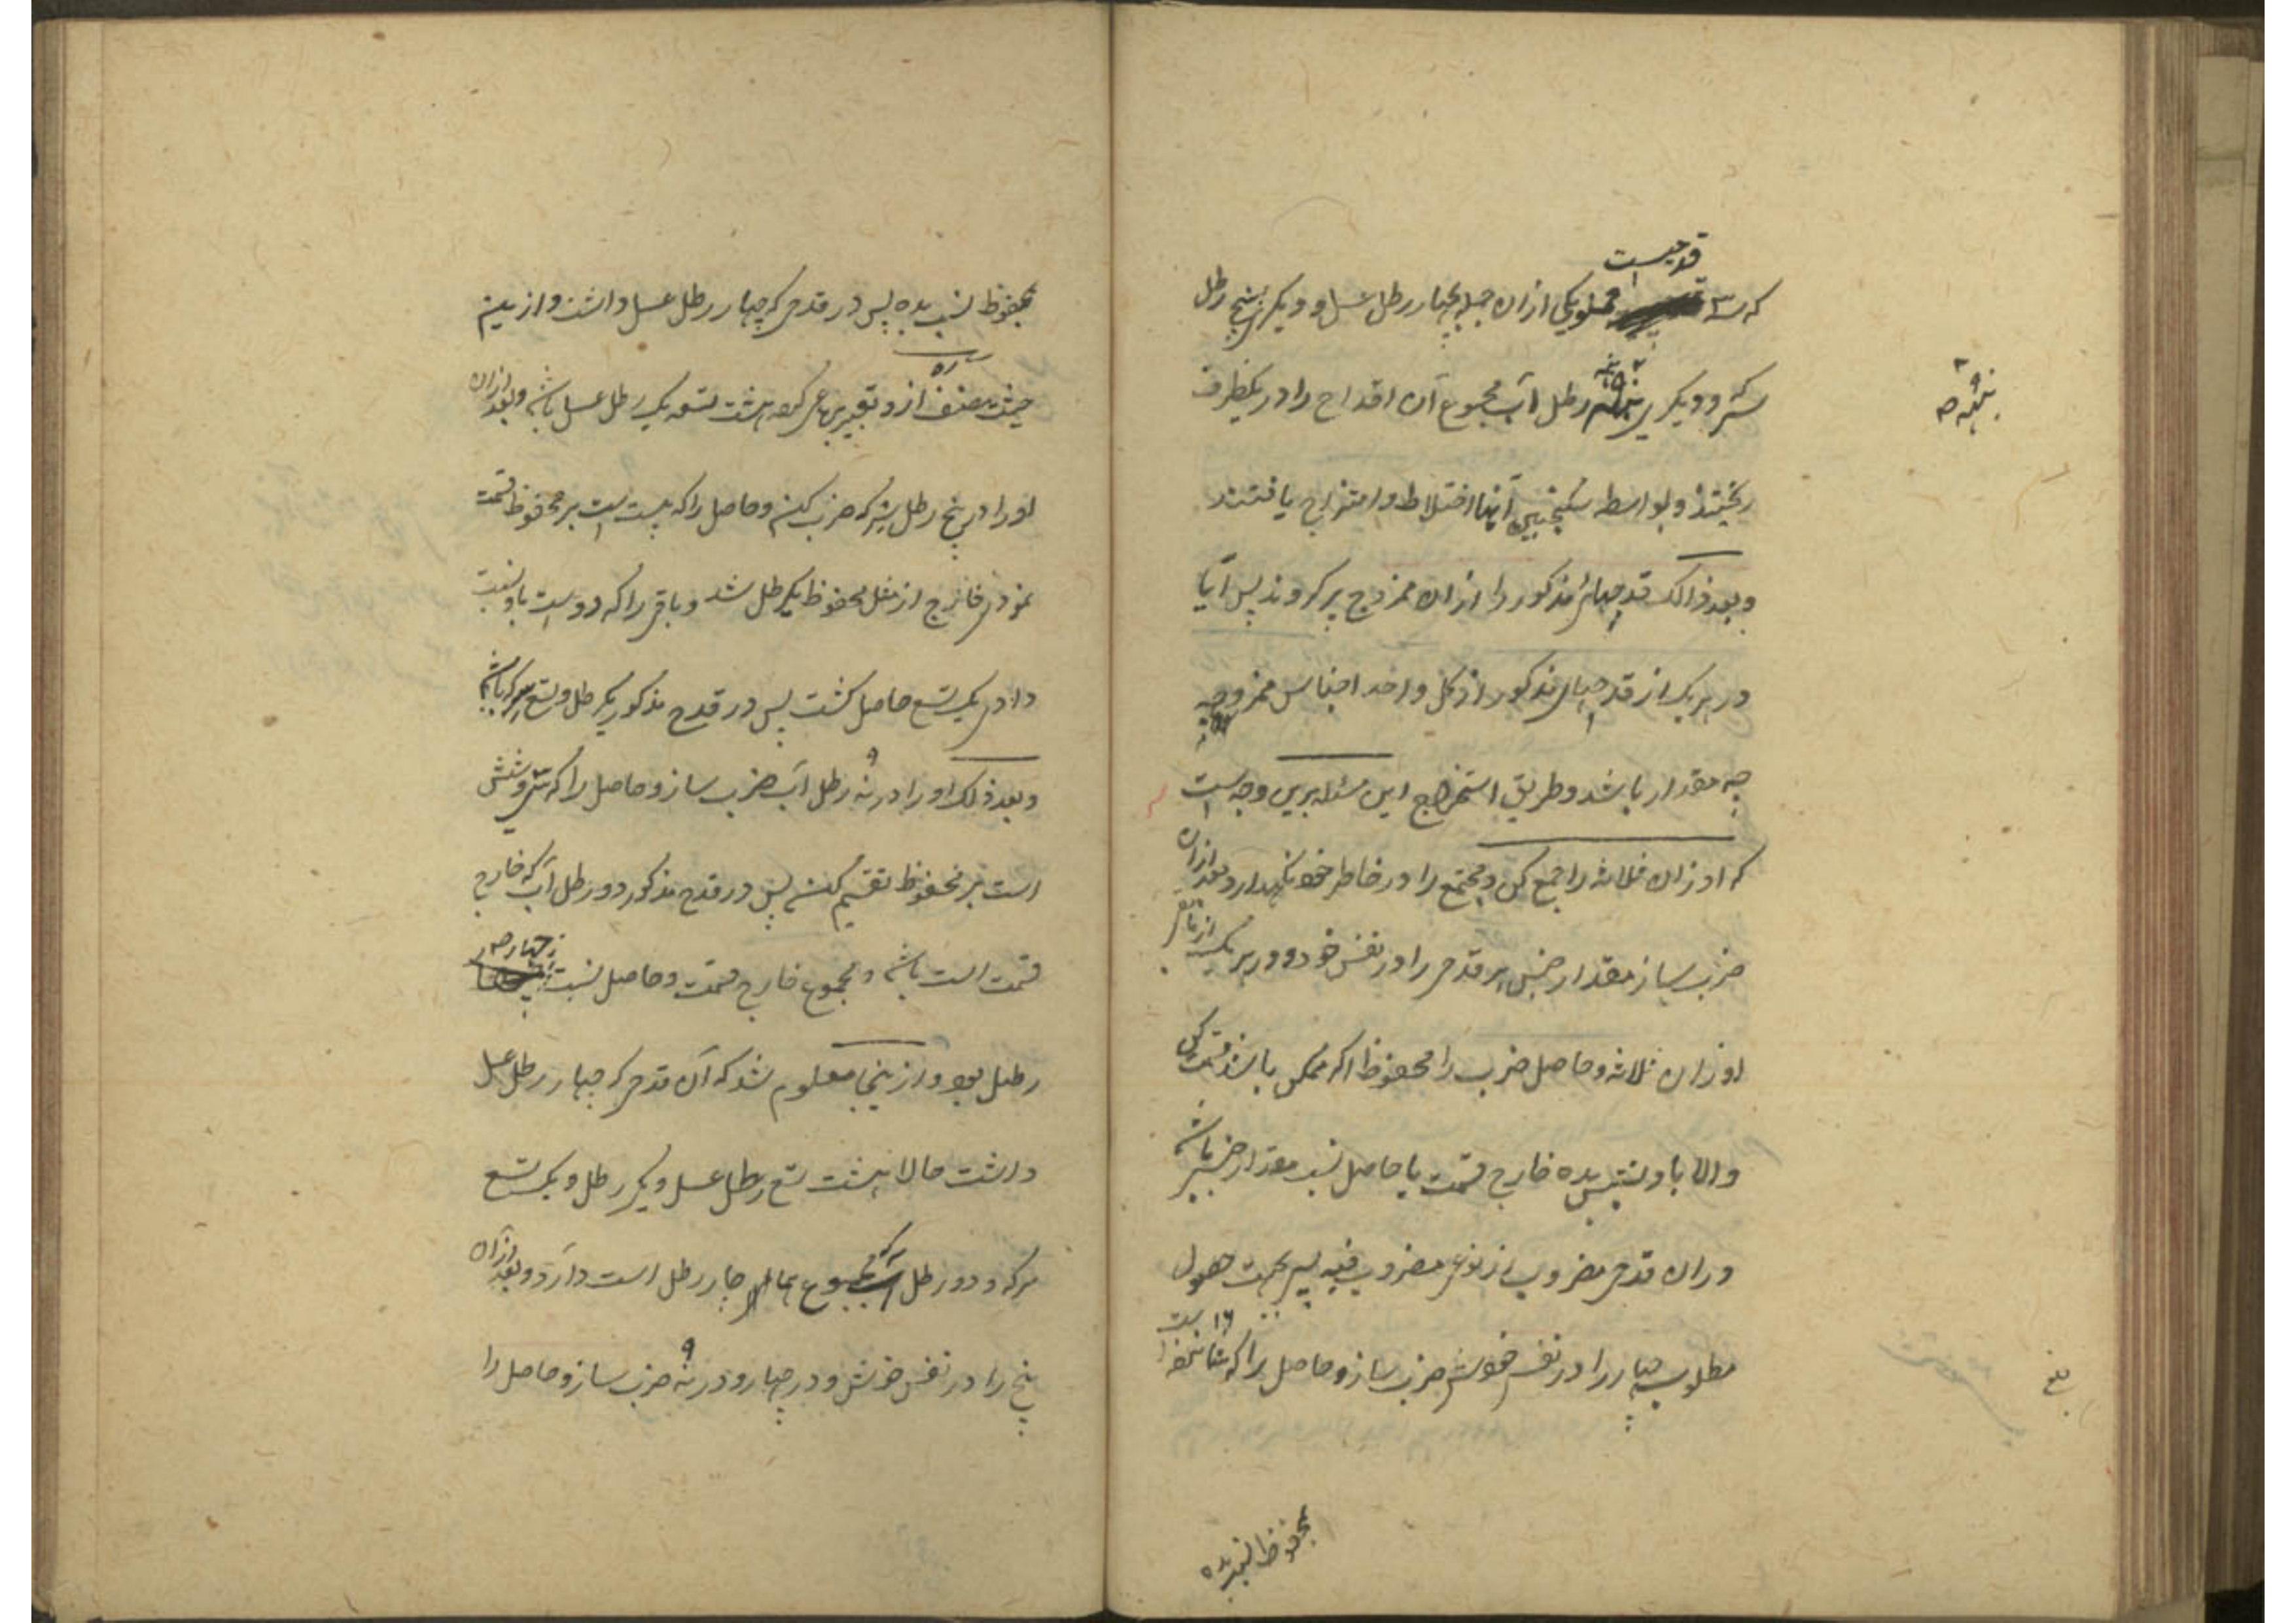 قدحیست
که سه مملو یکی ازان جمله بچهار رطل عسل و دیگری به پنج رطل
سرکه و دیگری بنه رطل آب مجموع آن اقداح را در یکظرف
ریختند و بواسطه سکنجبین آنها اختلاط و امتزاج یافتند
و بعد ذالک قدحهای مذکور را ازان ممزوج پر کردند پس آیا
در هر یک از قدحهای مذکور از کل واحد اجناس ممزوجه
چه مقدار باشد و طریق استخراج این مسئله برین وجه است
که اوزان ثلاثه را جمع کن و مجتمع را در خاطر خود نگهدار و بعد ازان
ضرب ساز مقدار جنس هر قدحی را در نفس خود و در هر یک از باقی
اوزان ثلاثه و حاصل ضرب را بمحفوظ اگر ممکن باشد قسمت کن
والا باو نسبتش بده خارج قسمت یا حاصل نسبت مقدار جنسی باشد
دران قدح مضروب از نوع مضروب فیه پس بجهت حصول
مطلوب چهار را در نفس خودش ضرب ساز و حاصل را که شانزده ۱۶ است
بمحفوظ نسبت بده
بمحفوظ نسبت بده پس در قدحی که چهار رطل عسل داشت و ازینم
حیث مصنف ره ازو تعبیر برباعی کرده هشت تسعه یک رطل عسل باشد و بعد ازان
او را در پنج رطل سرکه ضرب کنم و حاصل را که بیست است بر محفوظ قسمت
نمودم خارج از مثل محفوظ یکرطل شد و باقی را که دو است باو نسبت
دادم یک تسع حاصل گشت پس در قدح مذکور یکرطل و تسع سرکه باشد
و بعد ذلک او را در نه ۹ رطل آب ضرب ساز و حاصل را که سی و شش
است بر محفوظ تقسیم کنم پس در قدح مذکور دو رطل آب که خارج
قسمت است باشد و مجموع خارج قسمت و حاصل نسبت چهار
رطل بود و ازینجا معلوم شد که آن قدحی که چهار رطل عسل
داشت حالا هشت تسع رطل عسل و یکرطل و یک تسع
سرکه و دو رطل آب که مجموع چار رطل است دارد و بعد ازان
پنج را در نفس خودش و در چهار و در نه ۹ ضرب ساز و حاصل را